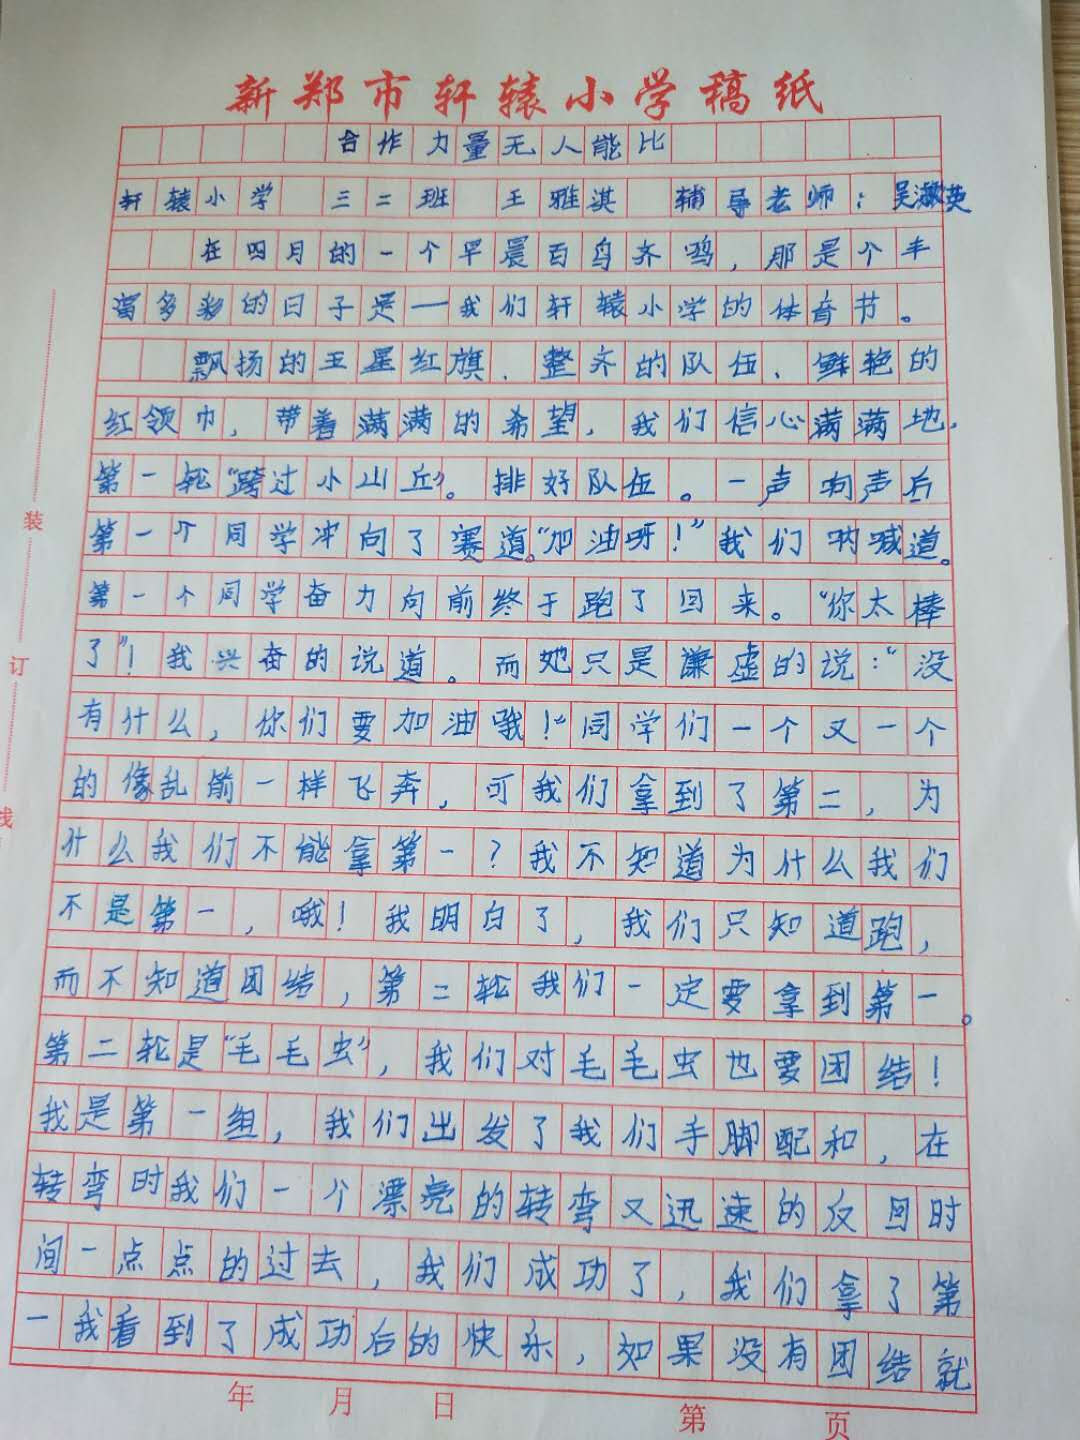 新郑市轩辕小学稿纸
合作力量无人能比
轩辕小学 三二班 王雅淇 辅导老师：吴淑英
在四月的一个早晨百鸟齐鸣，那是个丰
富多彩的日子是一我们轩辕小学的体育节。
飘扬的五星红旗、整齐的队伍、鲜艳的
红领巾，带着满满的希望，我们信心满满地，
第一轮“跨过小山丘”。排好队伍。一声响声后
第一个同学冲向了赛道。“加油呀！”我们呐喊道。
第一个同学奋力向前终于跑了回来。“你太棒
了”！我兴奋的说道。而她只是谦虚的说：“没
有什么，你们要加油哦！”同学们一个又一个
的像乱箭一样飞奔，可我们拿到了第二，为
什么我们不能拿第一？我不知道为什么我们
不是第一，哦！我明白了，我们只知道跑，
而不知道团结，第二轮我们一定要拿到第一。
第二轮是“毛毛虫”，我们对毛毛虫也要团结！
我是第一组，我们出发了我们手脚配和，在
转弯时我们一个漂亮的转弯又迅速的反回时
间一点点的过去，我们成功了，我们拿了第
一我看到了成功后的快乐，如果没有团结就
年 月 日 第 页
装
订
线